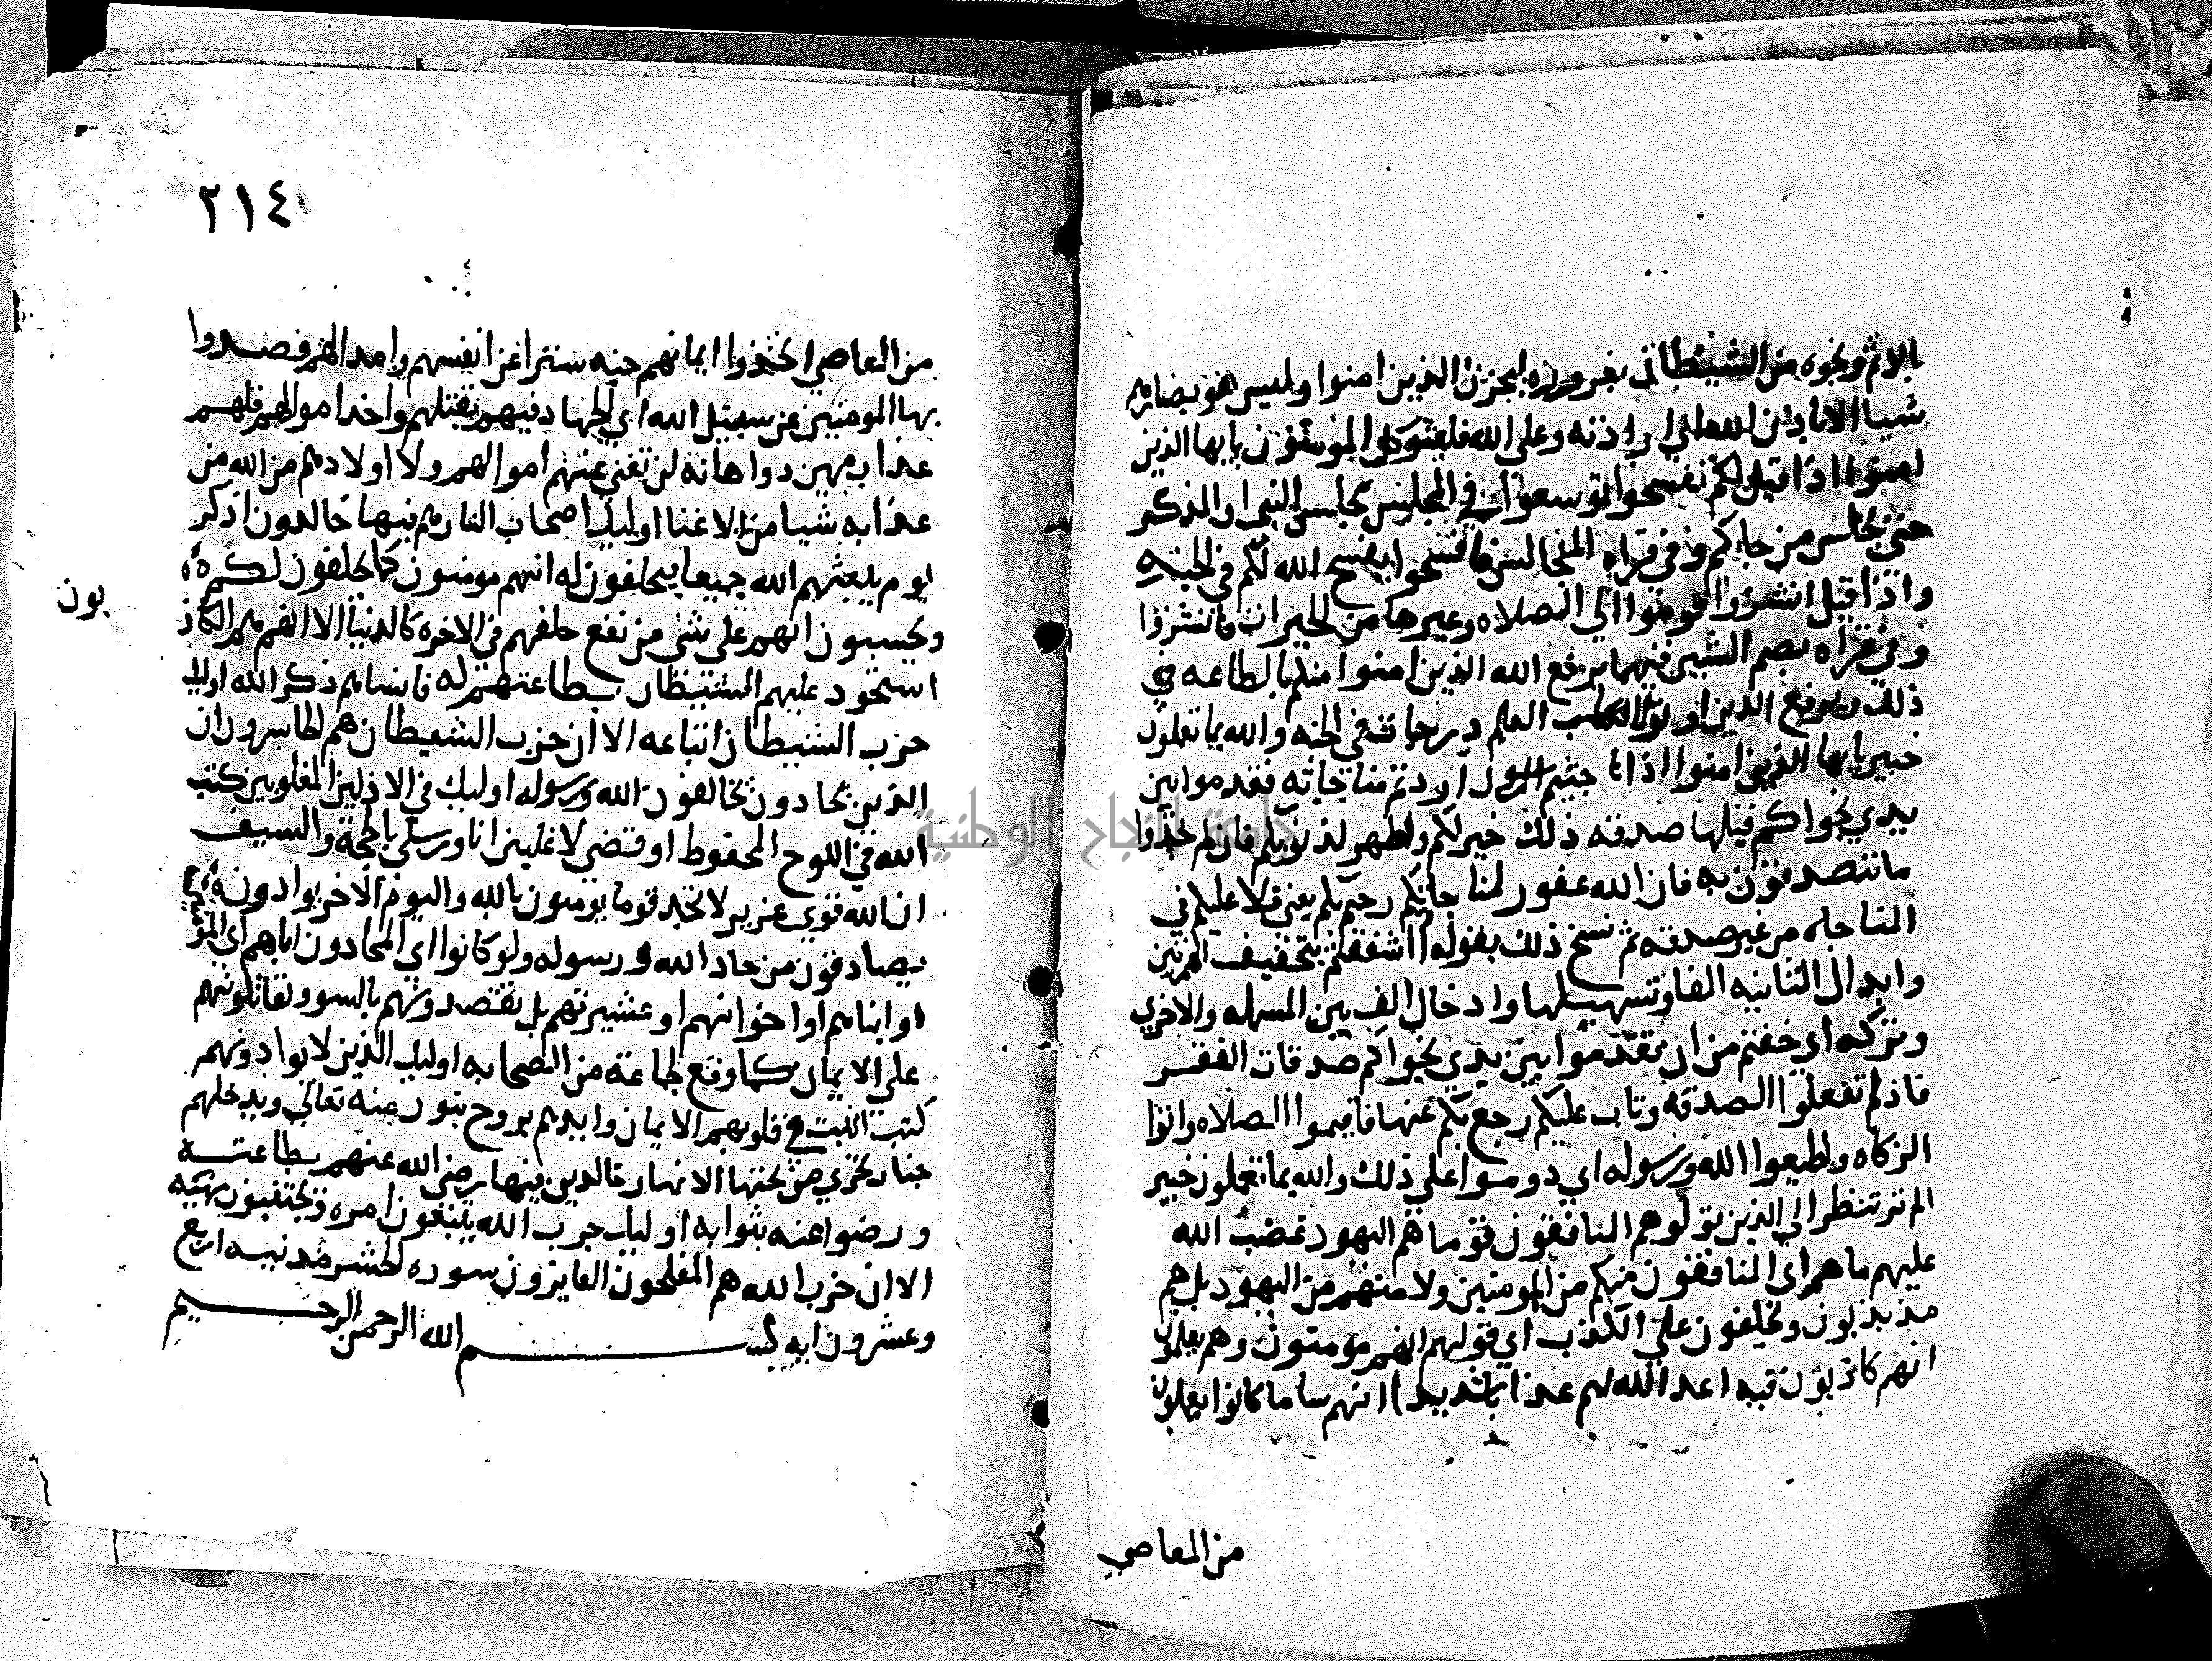 بالاثم ونحوه من الشيطان بغروره ليحزن الذين امنوا وليس هو بضارهم
شيا الا باذن الله اي ارادته وعلي الله فليتوكل المومنون يايها الذين
امنوا اذا قيل لكم تفسحوا توسعوا في المجلس مجلس النبي او الذكر
حتي يجلس من جاكم وفي قراه المجالس فافسحوا يفسح الله لكم في الجنه
واذا قيل انشزوا قوموا الي الصلاه وغيرها من الخيرات فانشزوا
وفي قراه بضم الشين فيهما يرفع الله الذين امنوا منكم بالطاعه في
ذلك ويرفع الذين اوتوا العلم درجات في الجنه والله بما تعملون
خبير يايها الذين امنوا اذا نا جيتم الرسول اردتم مناجاته فقدموا بين
يدي نجواكم قبلها صدقه ذلك خير لكم واطهر لذنوبكم فان لم تجدوا
ما تتصدقون به فان الله غفور لمنا جاتكم رحيم بكم يعني فلا عليكم في
المناجاه من غير صدقه ثم نسخ ذلك بقوله ااشفقتم بتحقيق الهمزتين
وابدال الثانيه الفا وتسهيلها وادخال الف بين المسهله والاخري
وتركه اي خفتم من ان تقدموا بين يدي نجواكم صدقات الفقر
فاذ لم تفعلوا الصدقه وتاب عليكم رجع بكم عنها فاقيموا الصلاه واتوا
الزكاه واطيعوا الله ورسوله اي دوموا علي ذلك والله بما تعملون خبير
الم تر تنظر الي الذين تولوا هم المنافقون قوما هم اليهود غضب الله
عليهم ما هم اي المنافقون منكم من المومنين ولا منهم من اليهود بل هم
مذبذبون ويحلفون علي الكذب اي قولهم انهم مومنون وهم يعلمون
انهم كاذبون فيه اعد الله لهم عذابا شديدا انهم سا ما كانوا يعملون
من المعاصي
٢١٤
من المعاصي اتخذوا ايمانهم جنه سترا عن انفسهم وامدالهم فصدوا
بها المومنين عن سبيل الله اي الجهاد فيهم بقتلهم واخذ اموالهم فلهم
عذاب مهين ذو اهانه لن تغني عنهم اموالهم ولا اولادهم من الله من
عذابه شيا من الاغنا اوليك اصحاب النار هم فيها خالدون اذكر
يوم يبعثهم الله جميعا فيحلفون له انهم مومنون كما يحلفون لكم
ويحسبون انهم علي شي من نفع حلفهم في الاخره كالدنيا الا انهم هم الكاذ
بون
استحوذ عليهم الشيطان بطاعتهم له فانساهم ذكر الله اوليك
حزب الشيطان اتباعه الا ان حزب الشيطان هم الخاسرون ان
الذين يحادون يخالفون الله ورسوله اوليك في الاذلين المغلوبين كتب
الله في اللوح المحفوظ او قضي لاغلبن انا ورسلي بالحجة والسيف
ان الله قوي عزيز لا تجد قوما يومنون بالله واليوم الاخر يوادون
يصادقون من حاد الله ورسوله ولو كانوا اي المحادون اباهم اي المو
او ابناهم او اخوانهم او عشيرتهم بل يقصدونهم بالسو ويقاتلونهم
علي الايمان كما وقع لجماعة من الصحابه اوليك الذين لا يوادونهم
كتب اثبت في قلوبهم الايمان وايدهم بروح بنور منه تعالي ويدخلهم
جنات تجري من تحتها الانهار خالدين فيها رضي الله عنهم بطاعته
ورضوا عنه بثوابه اوليك حزب الله يتبعون امره ويجتنبون نهيه
الا ان حزب الله هم المفلحون الفايزون سوره الحشر مدنيه اربع
وعشرون ايه بسم الله الرحمن الرحيم
جامعة النجاح الوطنية